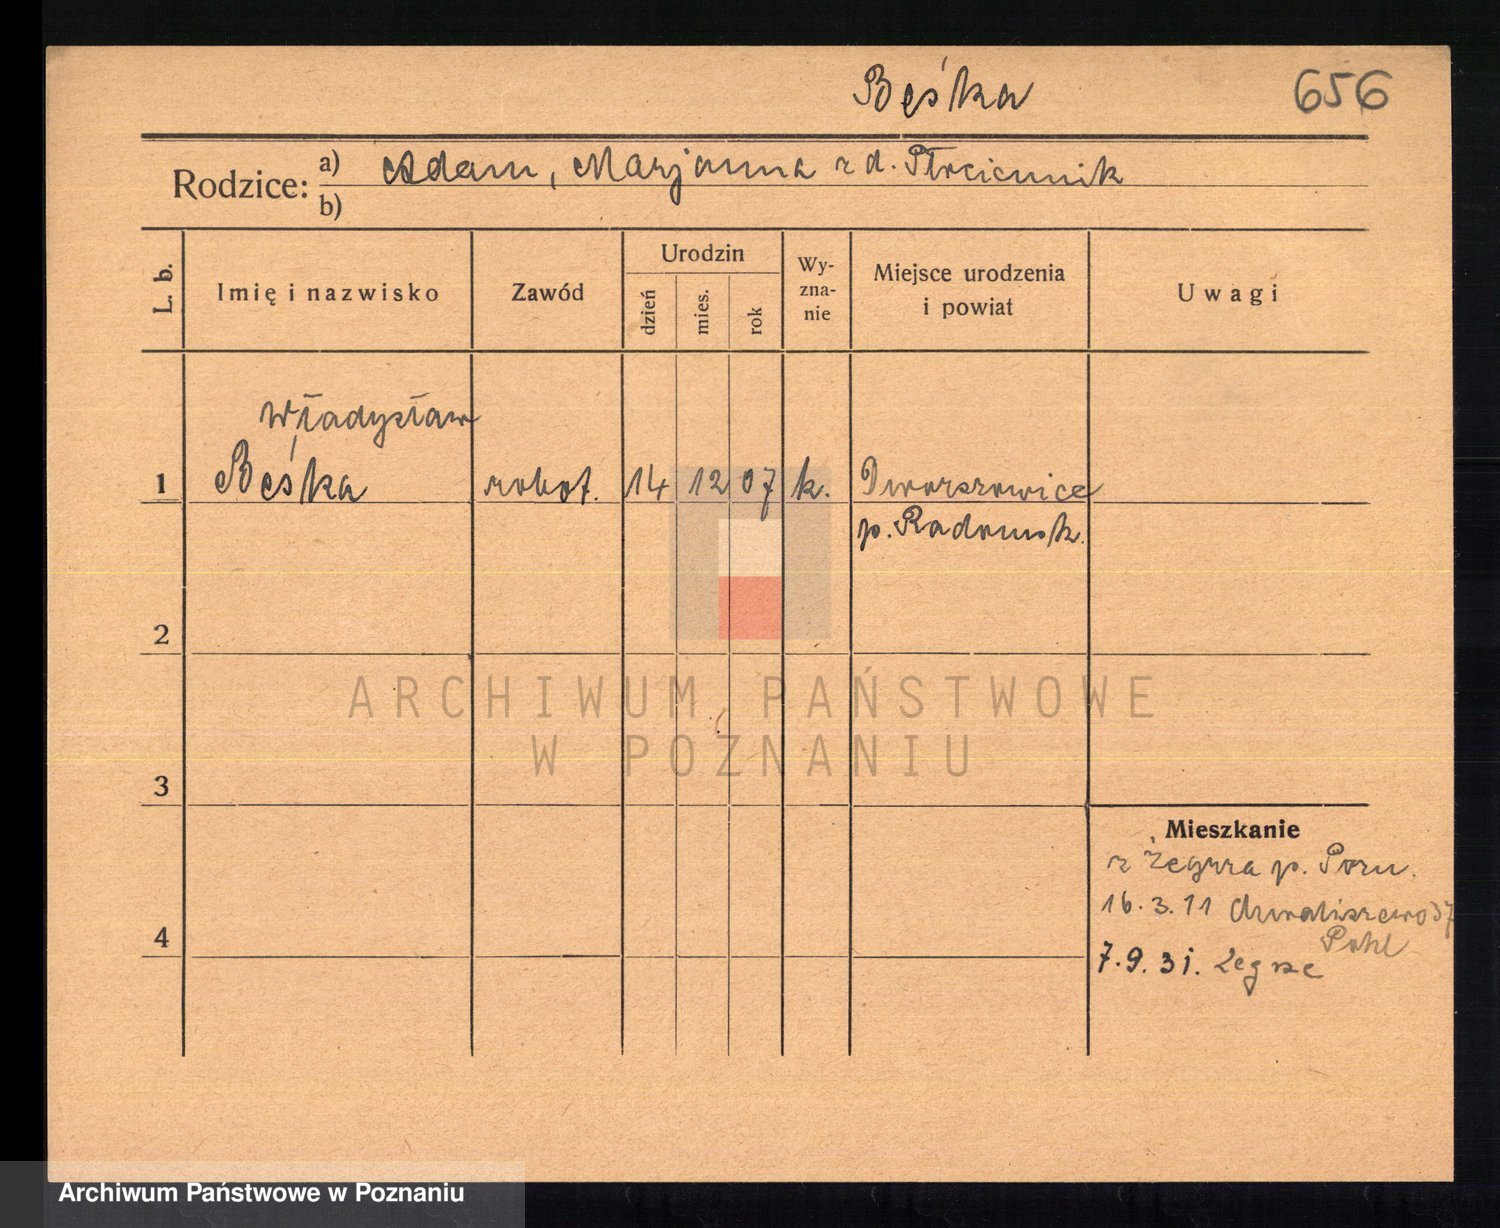 Bęśka 656
Rodzice: a) Adam, Marjanna z d.
b)
L. b.
Imię i nazwisko
Zawód
Urodzin
dzień
mies.
rok
Wy-
zna-
nie
Miejsce urodzenia
i powiat
Uwagi
Władysław
1 Beśka robot. 14 12 07 k. Dworszowice
p. Radomsk.
2
3
4
ARCHIWUM PAŃSTWOWE
W POZNANIU
Mieszkanie
z p. Pozn.
16.3.11 Chwaliszewo 37
Pohl
7.9.31. Żegrze
Archiwum Państwowe w Poznaniu